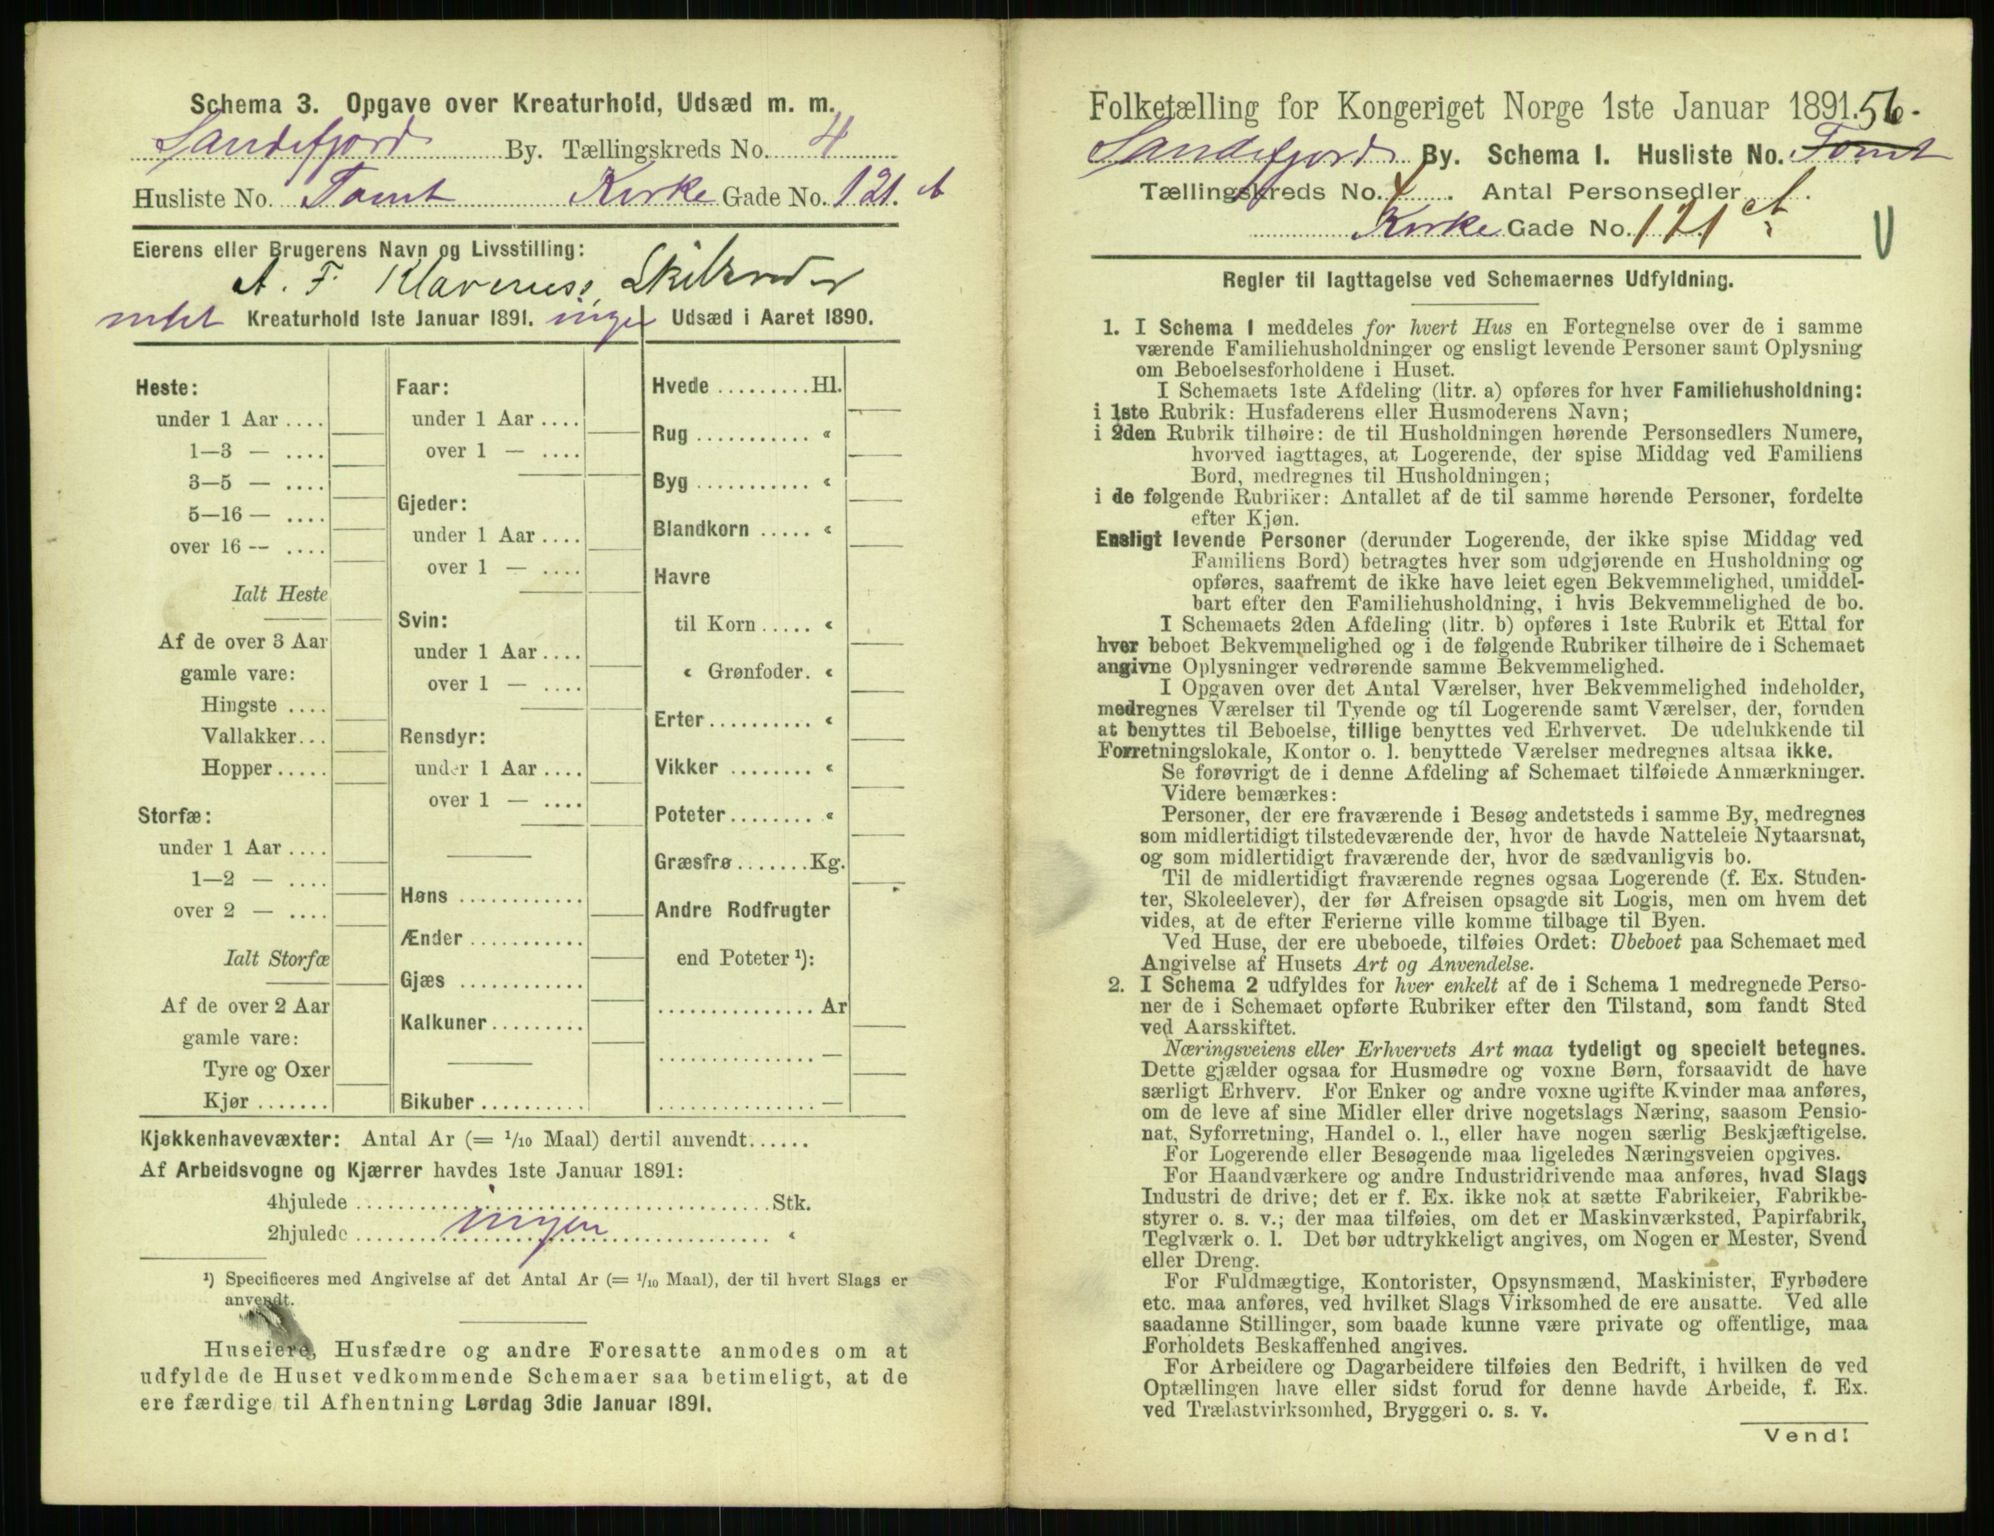 Schema 3. Opgave over Kreaturhold, Udsæd m. m.
Sandefjord By. Tællingskreds No. 4
Husliste No. Tomt Kirke Gade No. 121. A
Eierens eller Brugerens Navn og Livsstilling:
A. F. Klaveness, Skibsreder
intet Kreaturhold 1ste Januar 1891. ingen Udsæd i Aaret 1890.
Heste:
under 1 Aar ....
1—3 — ....
3—5 — ....
5—16 — ....
over 16 — ....
Ialt Heste
Af de over 3 Aar
gamle vare:
Hingste ....
Vallakker...
Hopper.....
Storfæ:
under 1 Aar ....
1—2 — ....
over 2 — ....
Ialt Storfæ
Af de over 2 Aar
gamle vare:
Tyre og Oxer
Kjør .......
Faar:
under 1 Aar ....
over 1 — ....
Gjeder:
under 1 Aar ....
over 1 — ....
Svin:
under 1 Aar ....
over 1 — ....
Rensdyr:
under 1 Aar ....
over 1 — ....
Høns ............
Ænder ...........
Gjæs ............
Kalkuner.........
Bikuber ..........
Hvede .........Hl.
Rug ........... «
Byg ........... «
Blandkorn ..... «
Havre
til Korn ..... «
« Grønfoder. «
Erter.......... «
Vikker ........ «
Poteter........ «
Græsfrø .......Kg.
Andre Rodfrugter
end Poteter ¹):
............... Ar
............... —
............... —
Kjøkkenhavevæxter: Antal Ar (= 1/10 Maal) dertil anvendt......
Af Arbeidsvogne og Kjærrer havdes 1ste Januar 1891:
4hjulede ........................................ Stk.
2hjulede ........ ingen ........................ «
¹) Specificeres med Angivelse af det Antal Ar (= 1/10 Maal), der til hvert Slags er
anvendt.
Huseiere, Husfædre og andre Foresatte anmodes om at
udfylde de Huset vedkommende Schemaer saa betimeligt, at de
ere færdige til Afhentning Lørdag 3die Januar 1891.
Folketælling for Kongeriget Norge 1ste Januar 1891. 56.
Sandefjord By. Schema 1. Husliste No. Tomt
Tællingskreds No. 4. Antal Personsedler .
Kirke Gade No. 121 A
Regler til Iagttagelse ved Schemaernes Udfyldning.
1. I Schema 1 meddeles for hvert Hus en Fortegnelse over de i samme
værende Familiehusholdninger og ensligt levende Personer samt Oplysning
om Beboelsesforholdene i Huset.
I Schemaets 1ste Afdeling (litr. a) opføres for hver Familiehusholdning:
i 1ste Rubrik: Husfaderens eller Husmoderens Navn;
i 2den Rubrik tilhøire: de til Husholdningen hørende Personsedlers Numere,
hvorved iagttages, at Logerende, der spise Middag ved Familiens
Bord, medregnes til Husholdningen;
i de følgende Rubriker: Antallet af de til samme hørende Personer, fordelte
efter Kjøn.
Ensligt levende Personer (derunder Logerende, der ikke spise Middag ved
Familiens Bord) betragtes hver som udgjørende en Husholdning og
opføres, saafremt de ikke have leiet egen Bekvemmelighed, umiddel-
bart efter den Familiehusholdning, i hvis Bekvemmelighed de bo.
I Schemaets 2den Afdeling (litr. b) opføres i 1ste Rubrik et Ettal for
hver beboet Bekvemmelighed og i de følgende Rubriker tilhøire de i Schemaet
angivne Oplysninger vedrørende samme Bekvemmelighed.
I Opgaven over det Antal Værelser, hver Bekvemmelighed indeholder,
medregnes Værelser til Tyende og til Logerende samt Værelser, der, foruden
at benyttes til Beboelse, tillige benyttes ved Erhvervet. De udelukkende til
Forretningslokale, Kontor o. l. benyttede Værelser medregnes altsaa ikke.
Se forøvrigt de i denne Afdeling af Schemaet tilføiede Anmærkninger.
Videre bemærkes:
Personer, der ere fraværende i Besøg andetsteds i samme By, medregnes
som midlertidigt tilstedeværende der, hvor de havde Natteleie Nytaarsnat,
og som midlertidigt fraværende der, hvor de sædvanligvis bo.
Til de midlertidigt fraværende regnes ogsaa Logerende (f. Ex. Studen-
ter, Skoleelever), der før Afreisen opsagde sit Logis, men om hvem det
vides, at de efter Ferierne ville komme tilbage til Byen.
Ved Huse, der ere ubeboede, tilføies Ordet: Ubeboet paa Schemaet med
Angivelse af Husets Art og Anvendelse.
2. I Schema 2 udfyldes for hver enkelt af de i Schema 1 medregnede Perso-
ner de i Schemaet opførte Rubriker efter den Tilstand, som fandt Sted
ved Aarsskiftet.
Næringsveiens eller Erhvervets Art maa tydeligt og specielt betegnes.
Dette gjælder ogsaa for Husmødre og voxne Børn, forsaavidt de have
særligt Erhverv. For Enker og andre voxne ugifte Kvinder maa anføres,
om de leve af sine Midler eller drive nogetslags Næring, saasom Pensio-
nat, Syforretning, Handel o. l., eller have nogen særlig Beskjæftigelse.
For Logerende eller Besøgende maa ligeledes Næringsveien opgives.
For Haandværkere og andre Industridrivende maa anføres, hvad Slags
Industri de drive; det er f. Ex. ikke nok at sætte Fabrikeier, Fabrikbe-
styrer o. s. v.; der maa tilføies, om det er Maskinværksted, Papirfabrik,
Teglværk o. l. Det bør udtrykkeligt angives, om Nogen er Mester, Svend
eller Dreng.
For Fuldmægtige, Kontorister, Opsynsmænd, Maskinister, Fyrbødere
etc. maa anføres, ved hvilket Slags Virksomhed de ere ansatte. Ved alle
saadanne Stillinger, som baade kunne være private og offentlige, maa
Forholdets Beskaffenhed angives.
For Arbeidere og Dagarbeidere tilføies den Bedrift, i hvilken de ved
Optællingen have eller sidst forud for denne havde Arbeide, f. Ex.
ved Trælastvirksomhed, Bryggeri o. s. v.
Vend!